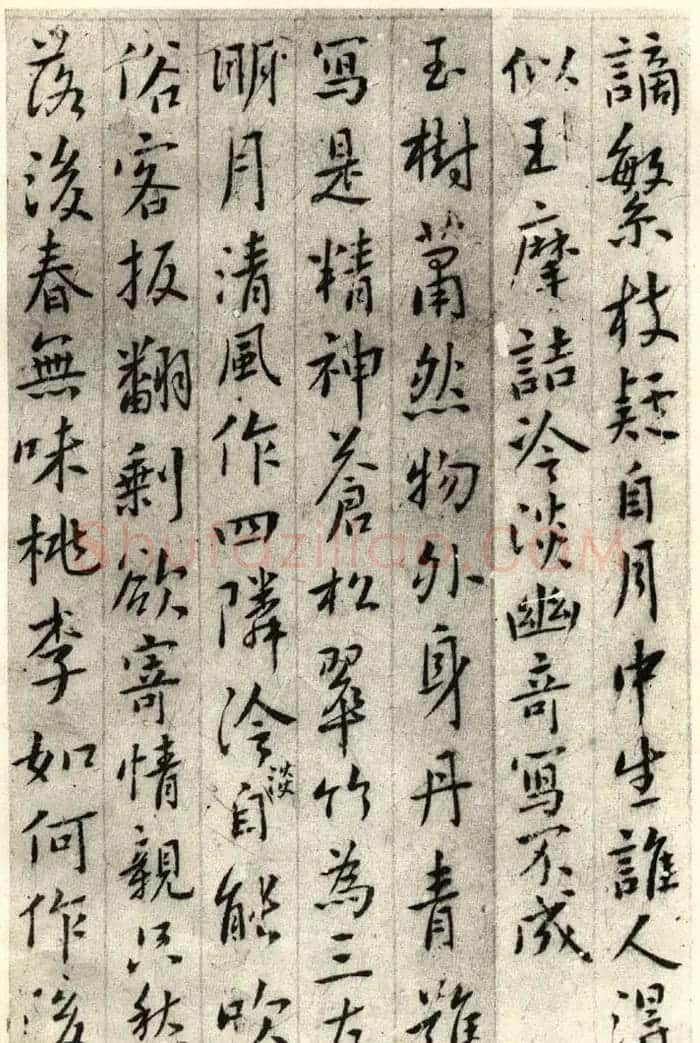 謫繁枝疑自月中生誰人得
似王摩詰冷淡幽奇寫不成
玉樹蕭然物外身丹青難
寫是精神蒼松翠竹為三友
明月清風作四隣冷淡自能吹
俗客扳翻剩欲寄情親只愁
落後春無味桃李如何作後
Shufaziliao.COM